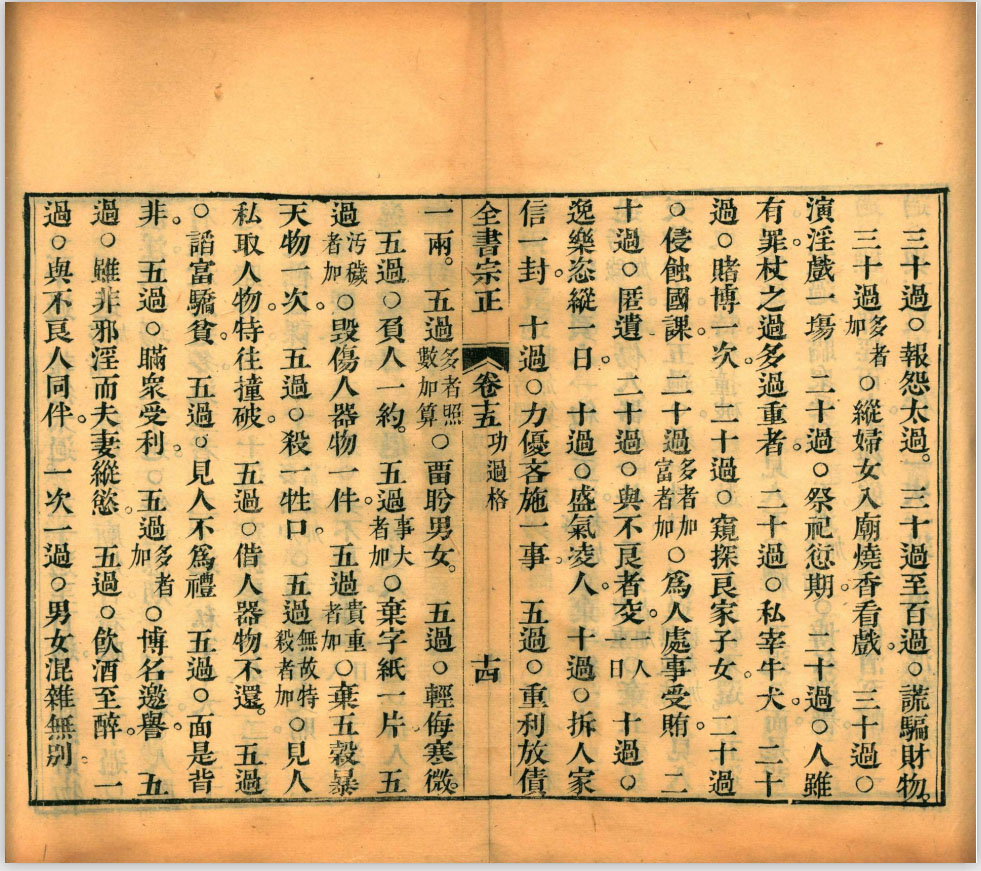 三十過○報怨太過。三十過至百過○謊騙財物。
三十過多者加○縱婦女入廟燒香看戲。三十過○
演淫戲一塲。二十過○祭祀愆期。二十過○人雖
有罪。杖之過多過重者。二十過○私宰牛犬。二十
過○賭博一次。二十過○窺探良家子女。二十過
○侵蝕國課。二十過多者加富者加○爲人處事受賄。二
十過○匿遺。二十過○與不良者交。一人一日十過○
逸樂恣縱一日。十過○盛氣凌人。十過○拆人家
信一封。十過○力優吝施一事。五過○重利放債
全書宗正 卷十五 功過格 十四
一兩。五過多者照數加算○畱盼男女。五過○輕侮寒微。
五過○負人一約。五過事大者加○棄字紙一片。五
過汚穢者加○毀傷人器物一件。五過貴重者加○棄五穀暴
天物一次。五過○殺一牲口。五過無故特殺者加○見人
私取人物。特往撞破。五過○借人器物不還。五過
○謟富驕貧。五過○見人不爲禮。五過○面是背
非。五過○瞞衆受利。五過多者加○博名邀譽。五
過○雖非邪淫而夫妻縱慾。五過○飲酒至醉。一
過○與不良人同伴。一次一過○男女混雜無別。